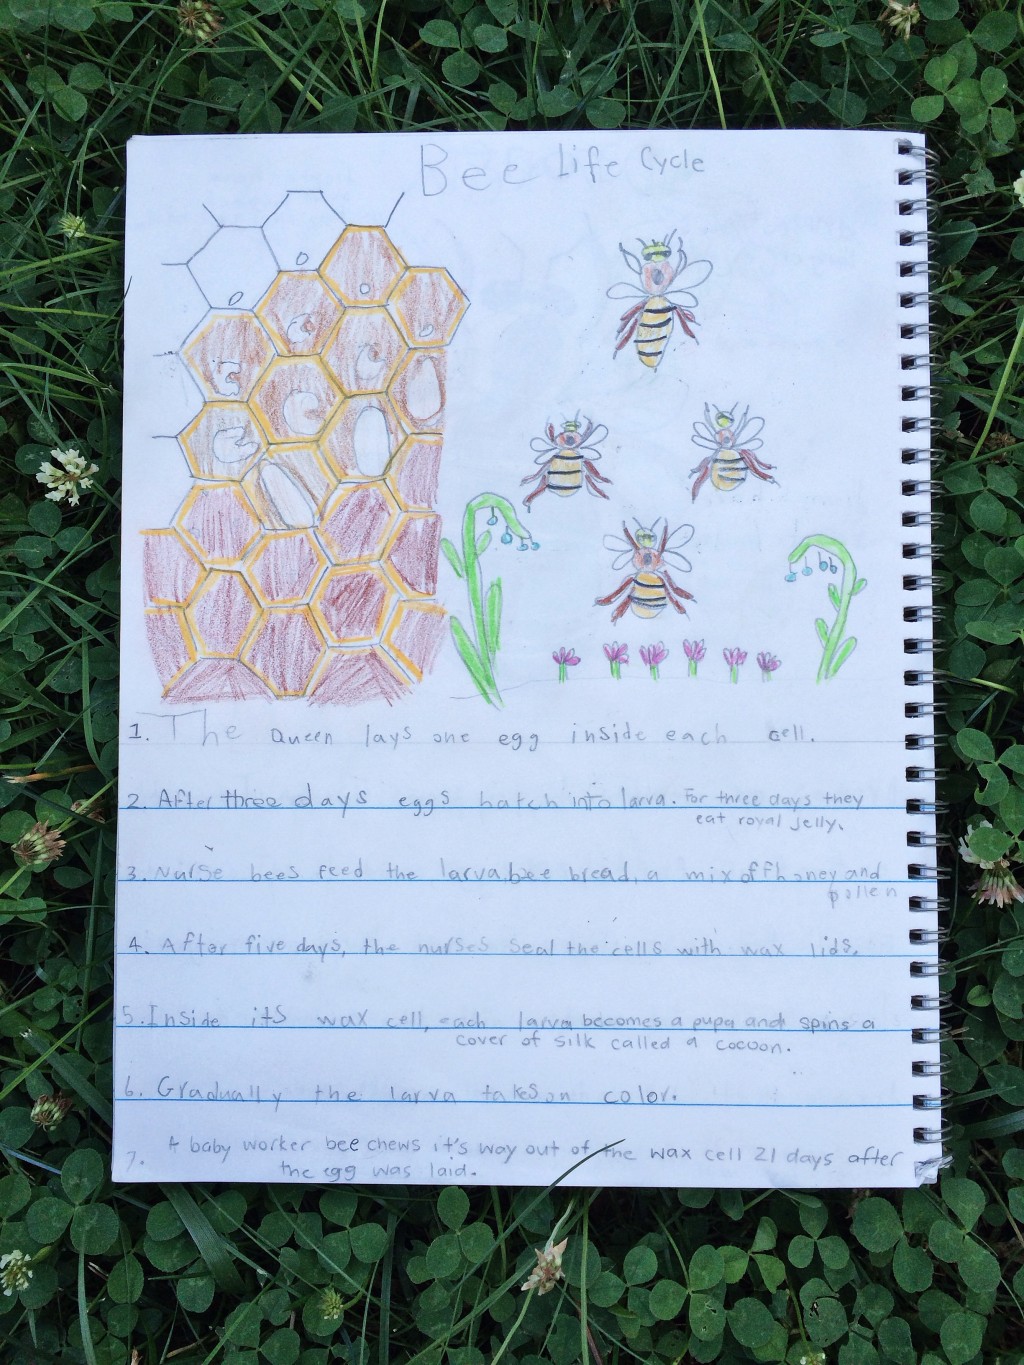 Bee Life Cycle
1. The Queen lays one egg inside each cell.
2. After three days eggs hatch into larva. For three days they
eat royal jelly.
3. Nurse bees feed the larva, bee bread, a mix off honey and
pollen
4. After five days, the nurses seal the cells with wax lids.
5. Inside its wax cell, each larva becomes a pupa and spins a
cover of silk called a cocoon.
6. Gradually the larva takes on color.
7. A baby worker bee chews it's way out of the wax cell 21 days after
the egg was laid.